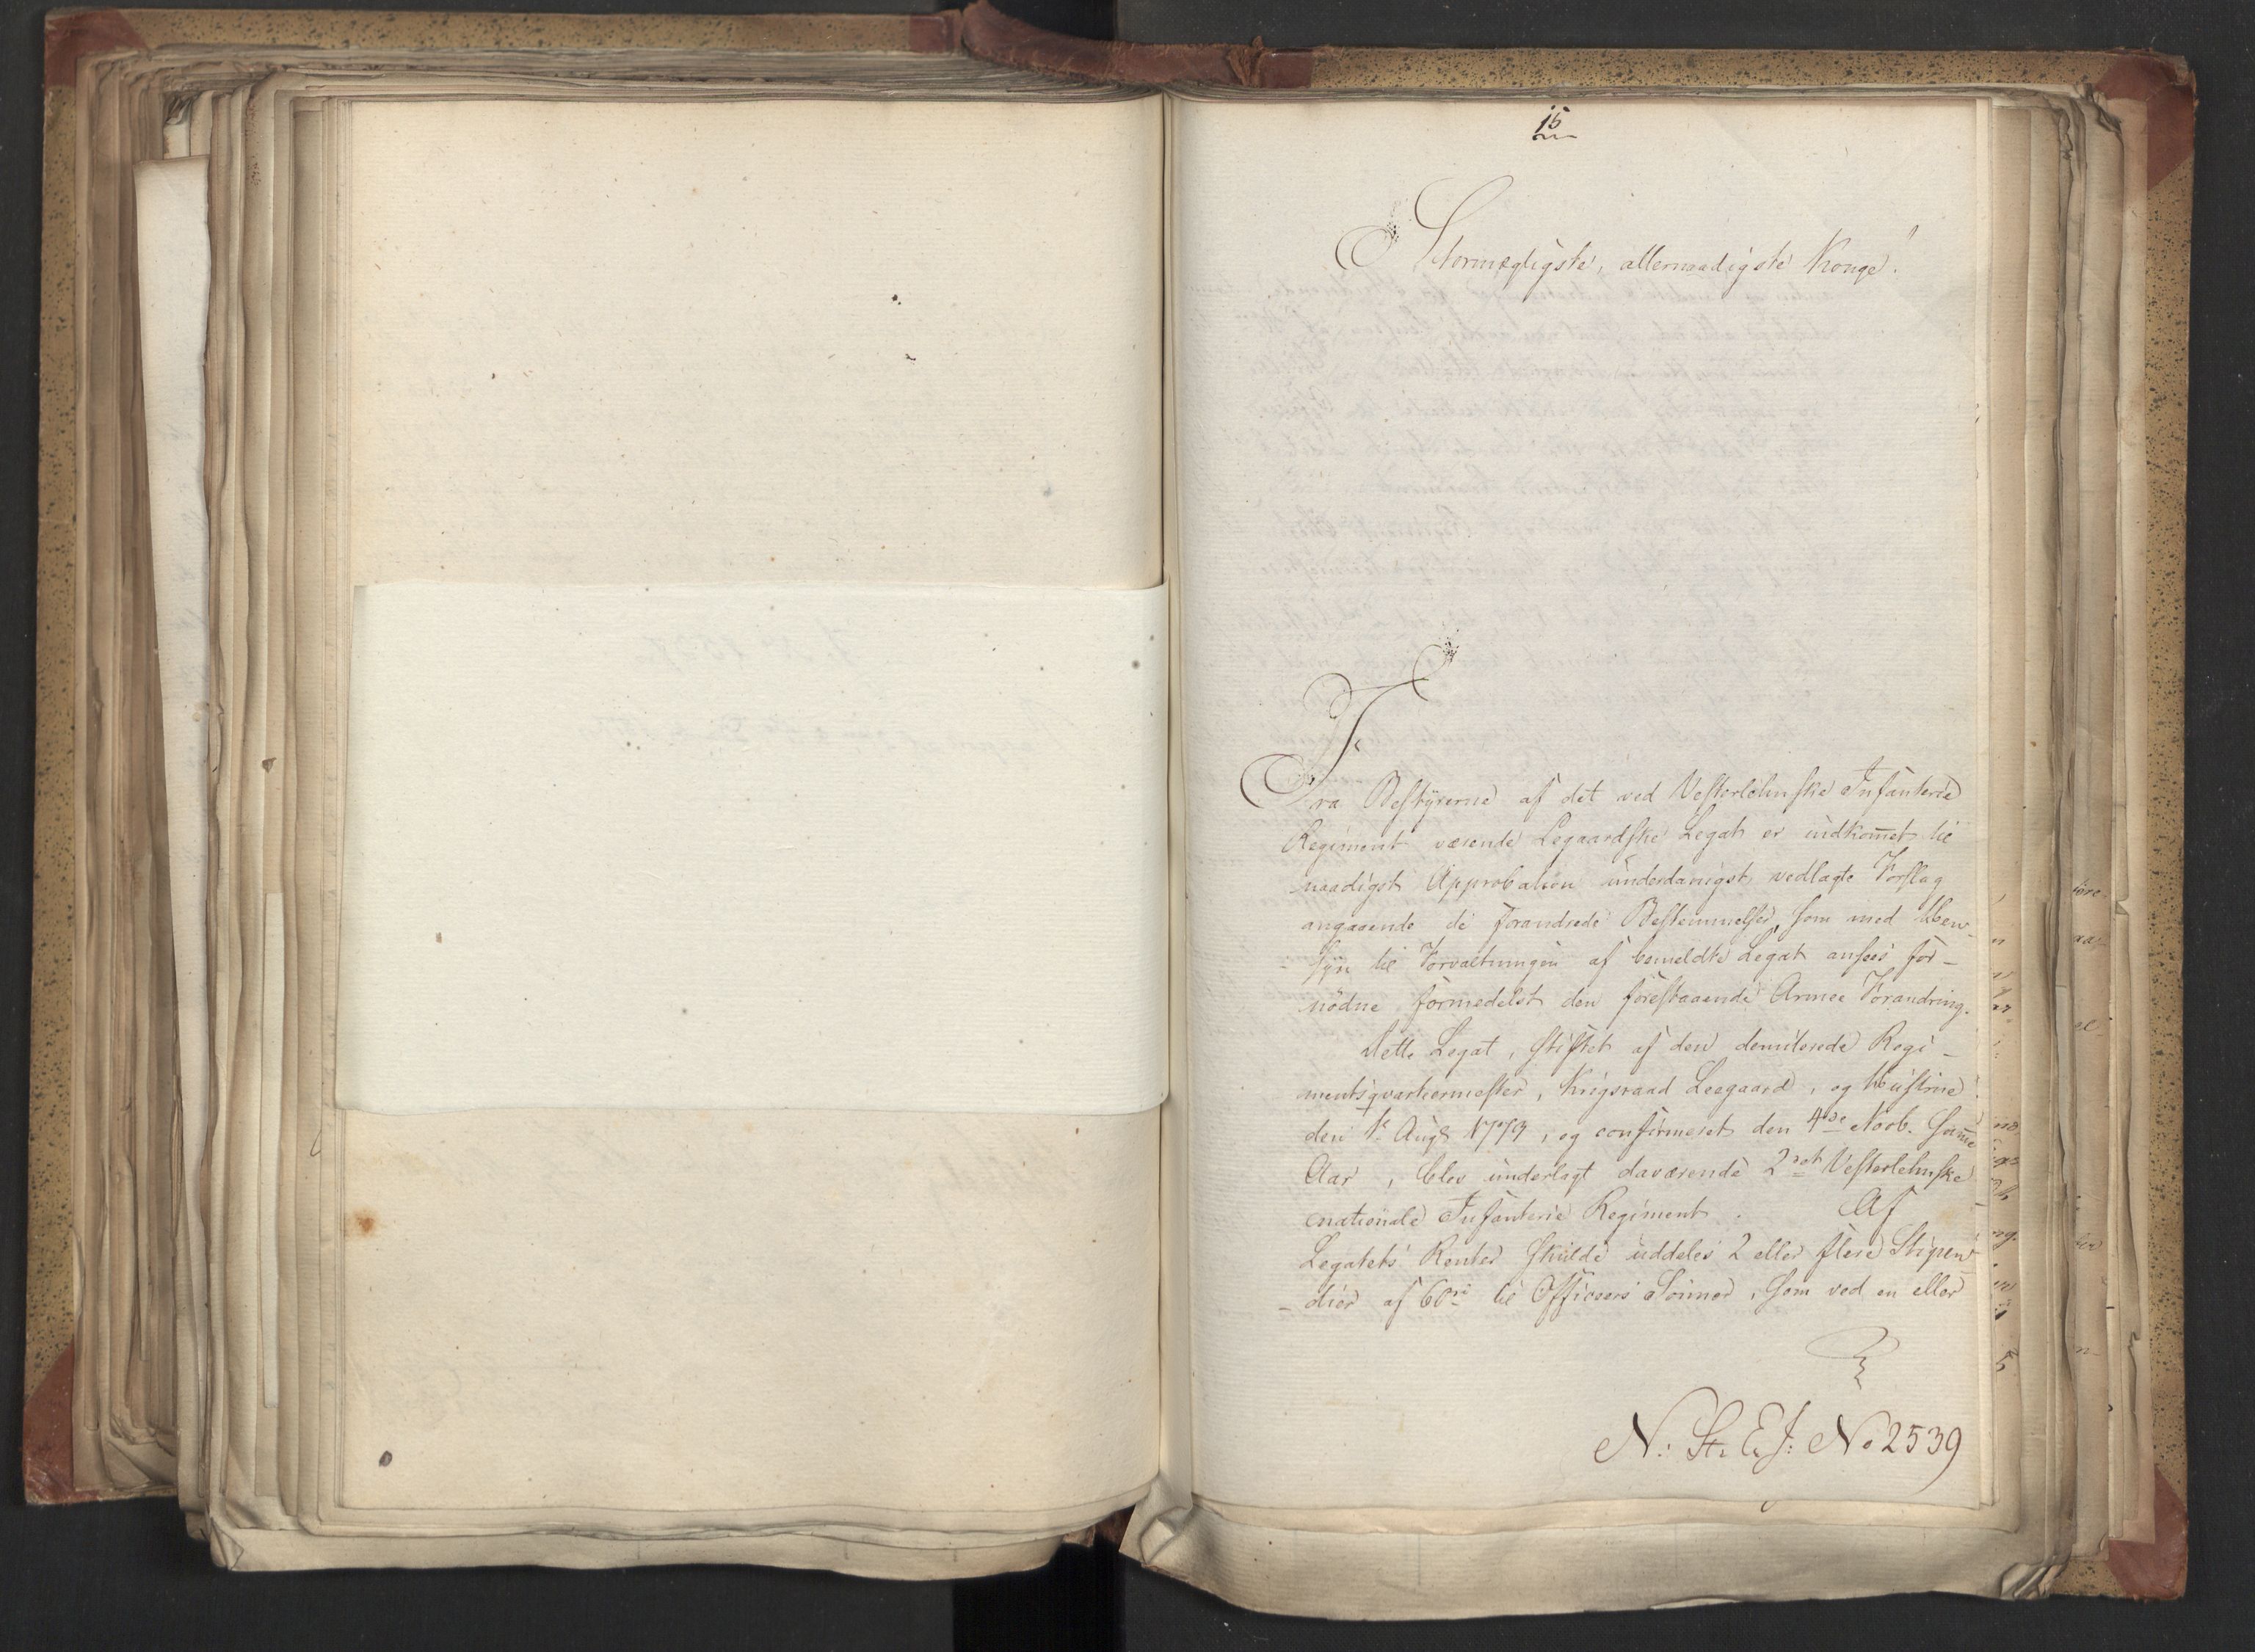 15
Stormægtigste, allernaadigste Konge!
Fra Bestyrerne af det ved Vesterlehnske Infanterie
Regiment værende Legaardske Legat er indkom̅et til
naadigst Approbation underdanigst vedlagte Forslag
angaaende de forandrede Bestemmelser, som med Hen-
syn til Forvaltningen af bemeldte Legat ansees for-
nödne formedelst den forestaaende Armee Forandring.
Dette Legat, stiftet af den demiterede Regi-
mentsqvarteermester, Krigsraad Leegaard, og Hustrue
den 1e Aug. 1773, og confirmeret den 4de Novb. sam̅e
Aar, blev underlagt daværende 2det Vesterlehnske
nationale Infanterie Regiment. Af
Legatets Renter skulde uddeles 2 eller flere Stipen-
-dier af 60rd til Officeers Sönner, som ved en eller
N: St. E. J: No 2539